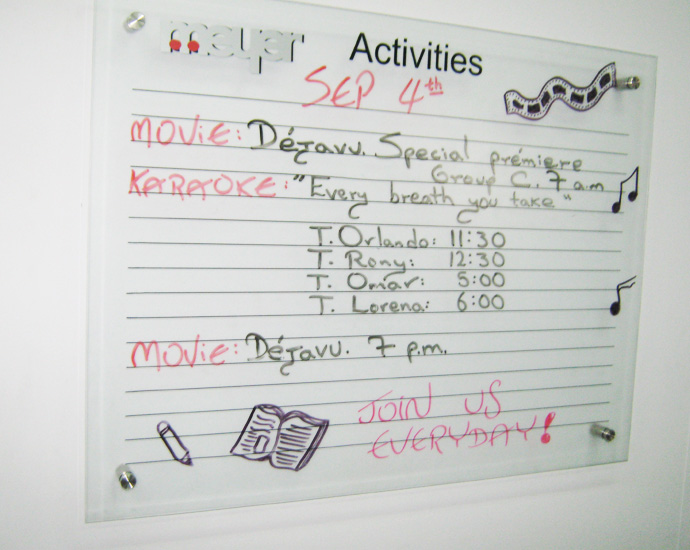 meyer Activities
SEP 4th
MOViE: Déjavu. Special prémiere
Group C. 7 am
KARAOKE: "Every breath you take"
T. Orlando: 11:30
T. Rony: 12:30
T. Omar: 5:00
T. Lorena: 6:00
MOViE: Déjavu. 7 p.m.
JOiN US
EVERYDAY!